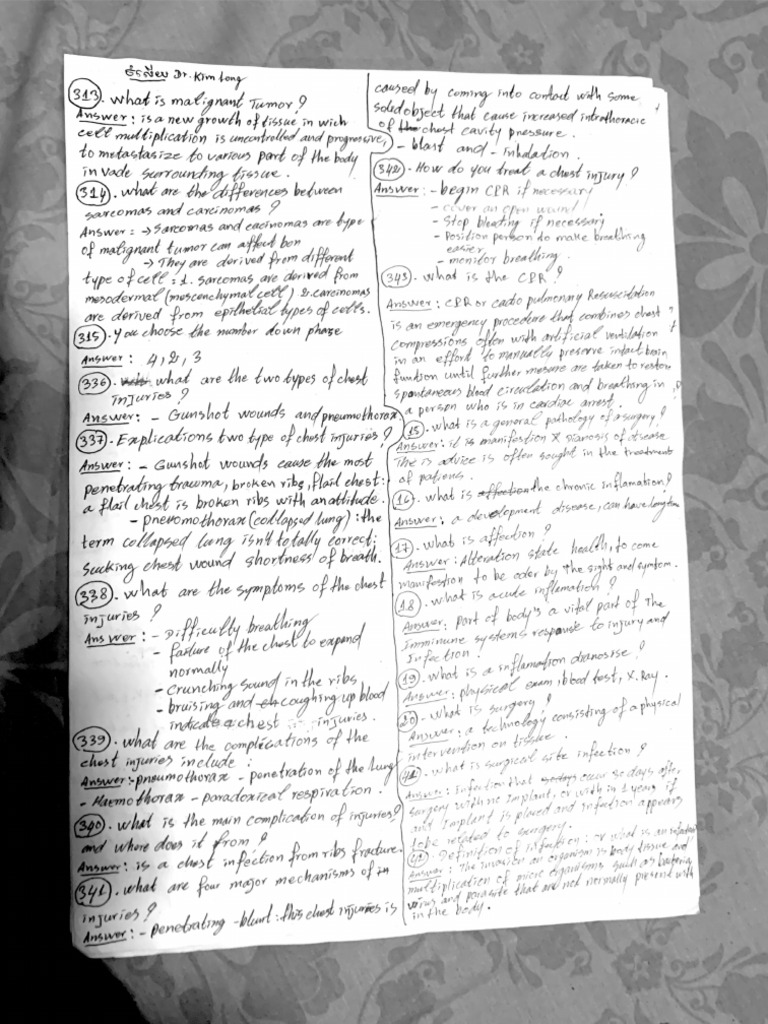 ចំលើយ Dr. Kim Long
313. What is malignant Tumor?
Answer: is a new growth of tissue in wich
cell multiplication is uncontrolled and progressive,
to metastasize to various part of the body
in vade surrounding tissue.
314. What are the differences between
sarcomas and carcinomas?
Answer: → Sarcomas and cacinomas are type
of malignant tumor can affect bon
→ They are derived from different
type of cell: 1. sarcomas are derived from
mesodermal (mescenchymal cell) 2. carcinomas
are derived from epithelial types of cells.
315. you choose the number down phase
Answer: 4, 2, 3
336. what are the two types of chest
injuries?
Answer: - Gunshot wounds and pneumothorax
337. Explications two type of chest injuries?
Answer: - Gunshot wounds cause the most
penetrating trauma, broken ribs, flail chest:
a flail chest is broken ribs with an attitude.
- pneumothorax (collapsed lung): the
term collapsed lung isn't totally correct;
sucking chest wound shortness of breath.
338. what are the symptoms of the chest
injuries?
Answer: - Difficulty breathing
- failure of the chest to expand
normally
- crunching sound in the ribs
- bruising and coughing up blood
indicate a chest injuries.
339. what are the complications of the
chest injuries include:
Answer: - pneumothorax - penetration of the lung
- Haemothorax - paradoxical respiration.
340. what is the main complication of injuries?
and where does it from?
Answer: is a chest infection from ribs fracture.
341. what are four major mechanisms of in
injuries?
Answer: - penetrating - blunt: this chest injuries is
caused by coming into contact with some
soled object that cause increased intrathoracic
of the chest cavity pressure.
- blast and - inhalation.
342. How do you treat a chest injury?
Answer: - begin CPR if necessary
- cover an open wound
- Stop bleeting if necessary
- Position person do make breathing
easier
- monitor breathing.
343. What is the CPR?
Answer: CPR or cadio pulmonary Resuscitation
is an emergency procedure that combines chest
compressions often with artificial ventilation
in an effort to manually preserve intact brain
funtion until further mesure are taken to restore
spontaneous blood circulation and breathing in
a person who is in cardiac arrest.
15. what is a general pathology of a surgery?
Answer: it is manifestion X Dianosis of disease
The is advice is often sought in the treatment
of patients.
16. what is the chronic inflamation?
Answer: a development disease, can have long term
17. what is affection?
Answer: Alteration state health, to come
manifestion to be oder by the sight and symtom.
18. what is acute inflamation?
Answer: part of body's a vital part of The
Immimune systems response to injury and
infection.
19. What is a inflamation dianosise?
Answer: physical exam, blood test, X. Ray.
20. What is surgery?
Answer: a technology consisting of a physical
intervention on tissue.
41. what is surgical site infection?
Answer: infection that occur 30 days after
surgery with no implant, or with in 1 years if
and Implant is placed and infection appears
to be related to surgery.
42. Definition of infection: or what is an infection
Answer: The invasion an organism is body tissue and
multiplication of micro organisms such as bacteria
virus and parasite that are not normally present with
in the body.